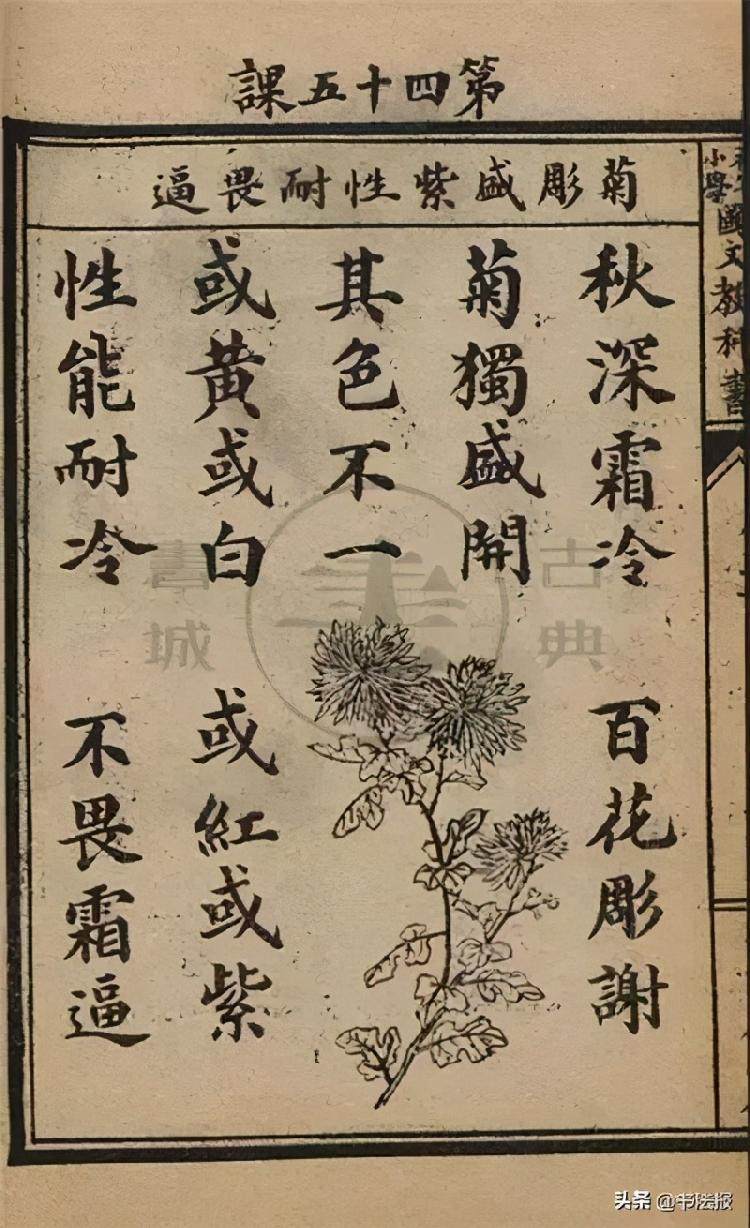 第四十五課
菊彫盛紫性耐畏逼
秋深霜冷 百花彫謝
菊獨盛開
其色不一
或黃或白 或紅或紫
性能耐冷 不畏霜逼
小學國文教科書
古典
書城
头条 @书法报